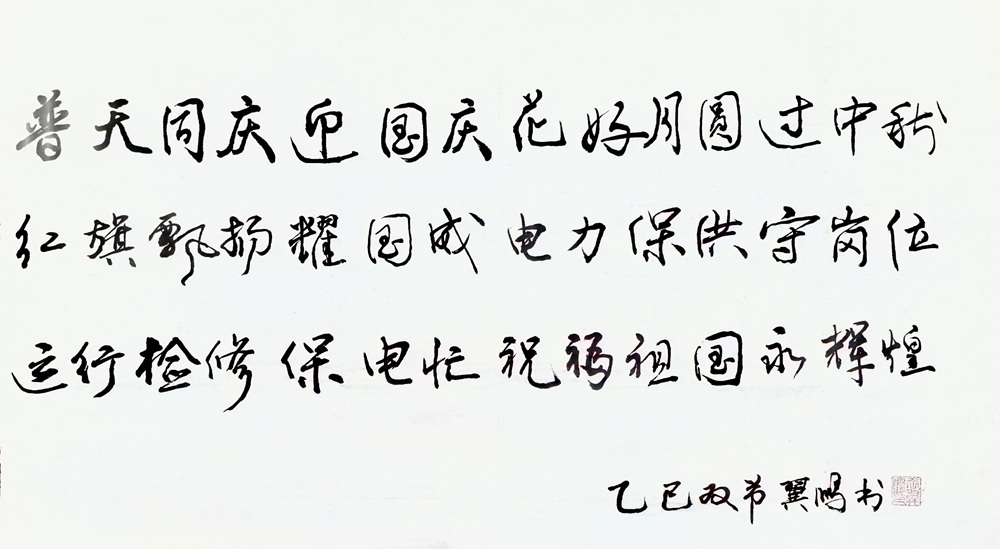 普天同庆迎国庆花好月圆过中秋
红旗飘扬耀国威电力保洪守岗位
运行检修保电忙祝福祖国永辉煌
乙巳双节翼鸣书